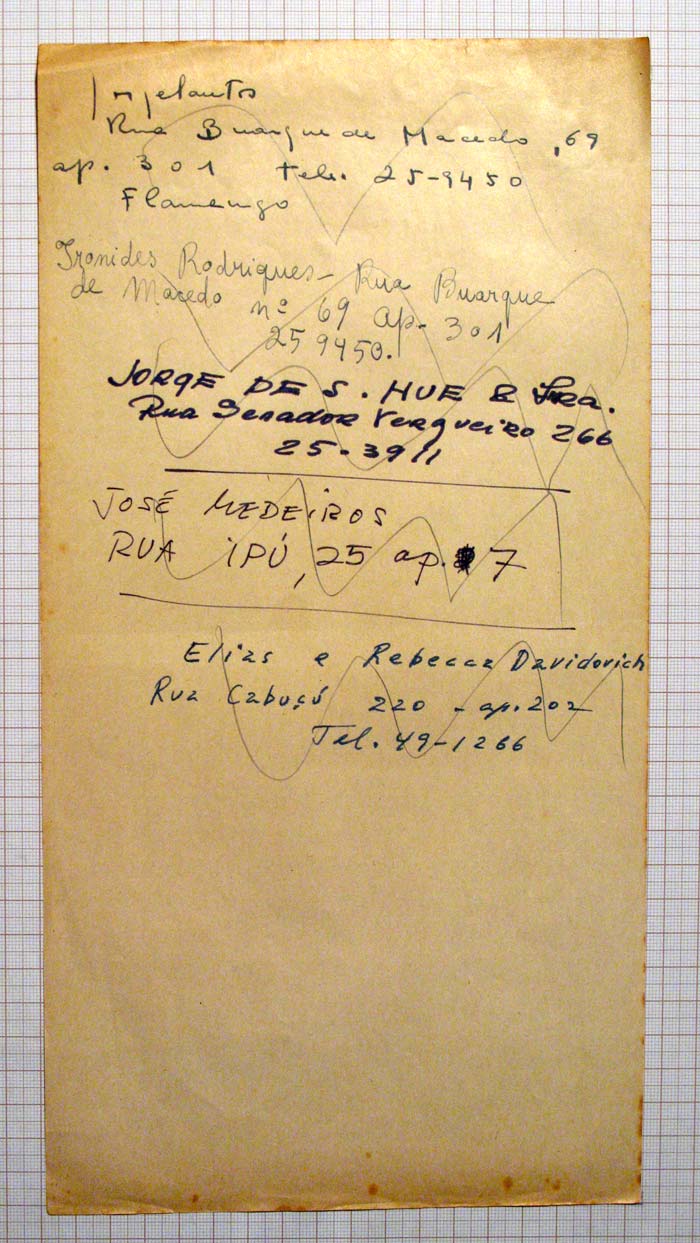 Rua Buarque de Macedo, 69
ap. 301 tels. 25-9450
Flamengo
Ironides Rodrigues - Rua Buarque
de Macedo nº 69 Ap- 301
259450.
JORGE DE S. HUE & Sra.
Rua Senador Vergueiro 266
25-3911
JOSÉ MEDEIROS
RUA IPÚ, 25 ap. 7
Elias e Rebecca Davidovich
Rua Cabuçú 220 - ap. 202
Tel. 49-1266